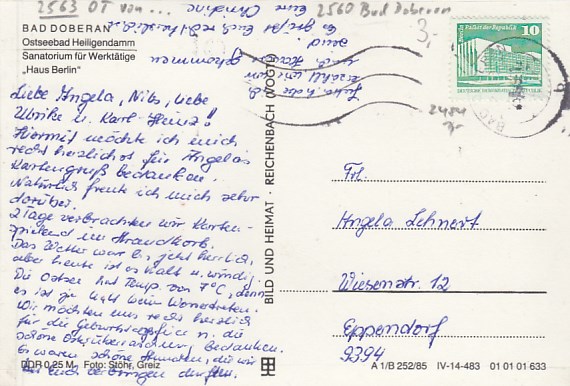 2563 OT von ...
2560 Bad Doberan
BAD DOBERAN
Ostseebad Heiligendamm
Sanatorium für Werktätige
„Haus Berlin“
3,-
Palast der Republik
10
DEUTSCHE DEMOKRATISCHE REPUBLIK
2484
Es grüßt Euch recht herzlich
Eure Christine
gekommen
sind.
Liebe Angela, Nils, liebe
Ulrike u. Karl-Heinz!
Hiermit möchte ich mich
recht herzlichst für Angelas
Kartengruß bedanken.
Natürlich freute ich mich sehr
darüber.
2 Tage verbrachten wir Karten-
spielend im Strandkorb.
Das Wetter war bis jetzt herrlich,
aber heute ist es kalt u. windig.
Die Ostsee hat Temp. von 7°C, denn
es ist zu kalt beim Wassertreten.
Wir möchten uns recht herzlich
für die Geburtstagsgrüße u. die
schöne bedanken.
Es waren schöne Stunden, die wir
bei euch verbringen durften.
BILD UND HEIMAT · REICHENBACH (VOGTL)
Frl.
Angela Lehnert
Wiesenstr. 12
Eppendorf
9394
DDR 0,25 M Foto: Stöhr, Greiz
A 1/B 252/85 IV-14-483 01 01 01 633